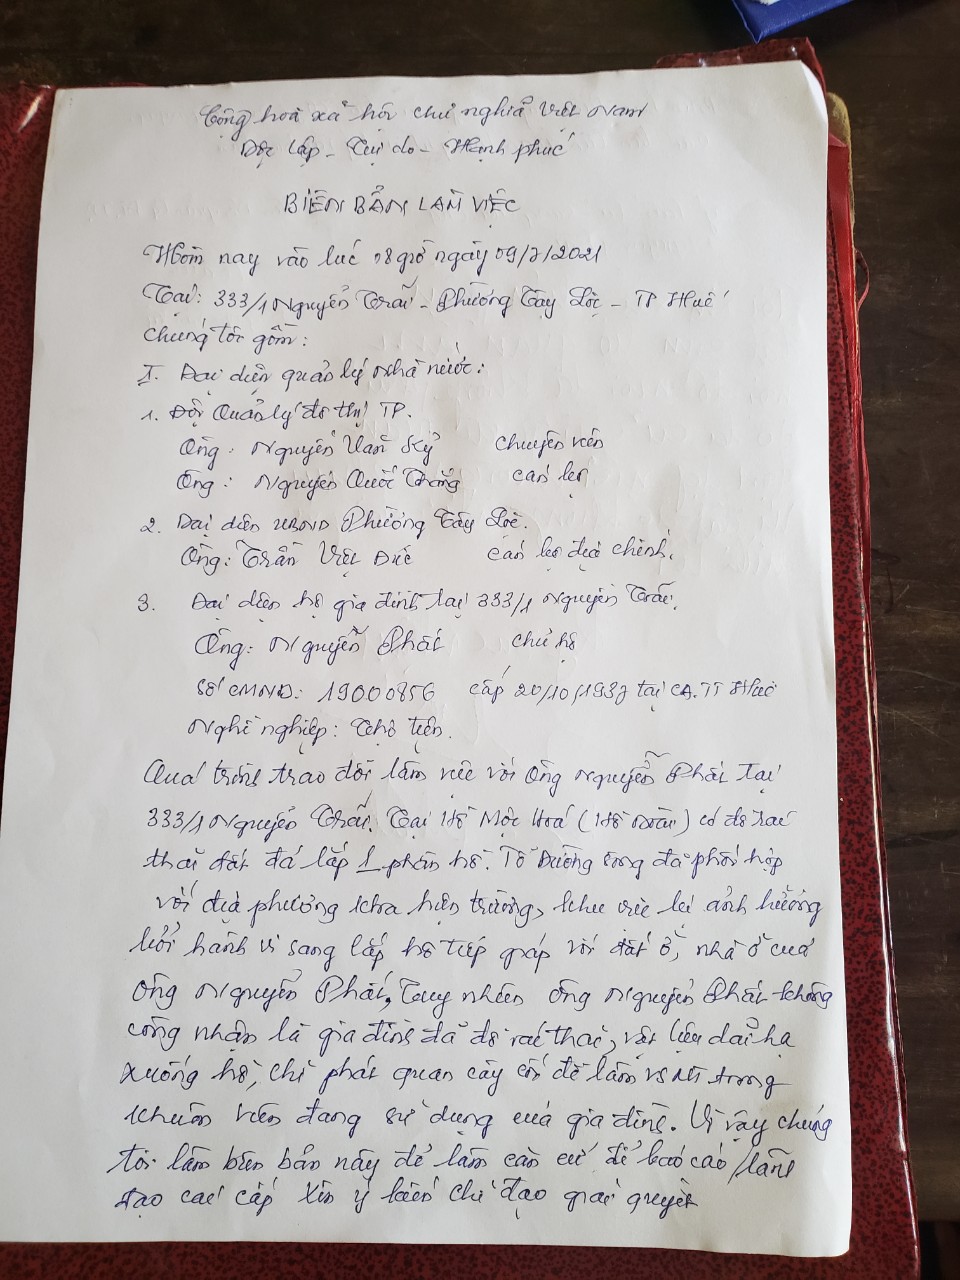 Cộng hoà xã hội chủ nghĩa Việt Nam
Độc lập - Tự do - Hạnh phúc
BIÊN BẢN LÀM VIỆC
Hôm nay vào lúc 08 giờ ngày 09/7/2021
Tại: 333/1 Nguyễn Trãi - Phường Tây Lộc - TP Huế
chúng tôi gồm:
I. Đại diện quản lý nhà nước:
1. Đội Quản lý đô thị TP.
Ông: Nguyễn Văn Kỷ chuyên viên
Ông: Nguyễn Quốc Thắng cán bộ
2. Đại diện UBND Phường Tây Lộc.
Ông: Trần Việt Đức cán bộ địa chính.
3. Đại diện hộ gia đình tại 333/1 Nguyễn Trãi.
Ông: Nguyễn Phát chủ hộ
Số CMND: 19000856 cấp 20/10/1987 tại CA. TT Huế
Nghề nghiệp: Thợ tiện.
Quá trình trao đổi làm việc với Ông Nguyễn Phát tại
333/1 Nguyễn Trãi. Tại Hồ Mộc Hoá có đổ rác
thải đất đá lấp 1 phần hồ. Tổ đã phối hợp
với địa phương ktra hiện trường, khu vực bị ảnh hưởng
bởi hành vi sang lấp hồ tiếp giáp với đất ở, nhà ở của
ông Nguyễn Phát, Tuy nhiên ông Nguyễn Phát không
công nhận là gia đình đã đổ rác thải, vật liệu
xuống hồ, chỉ phát quan cây cối để làm vs trong
khuôn viên đang sử dụng của gia đình. Vì vậy chúng
tôi lầm biên bản này để làm căn cứ để báo cáo lãnh
đạo các cấp xin ý kiến chỉ đạo giải quyết